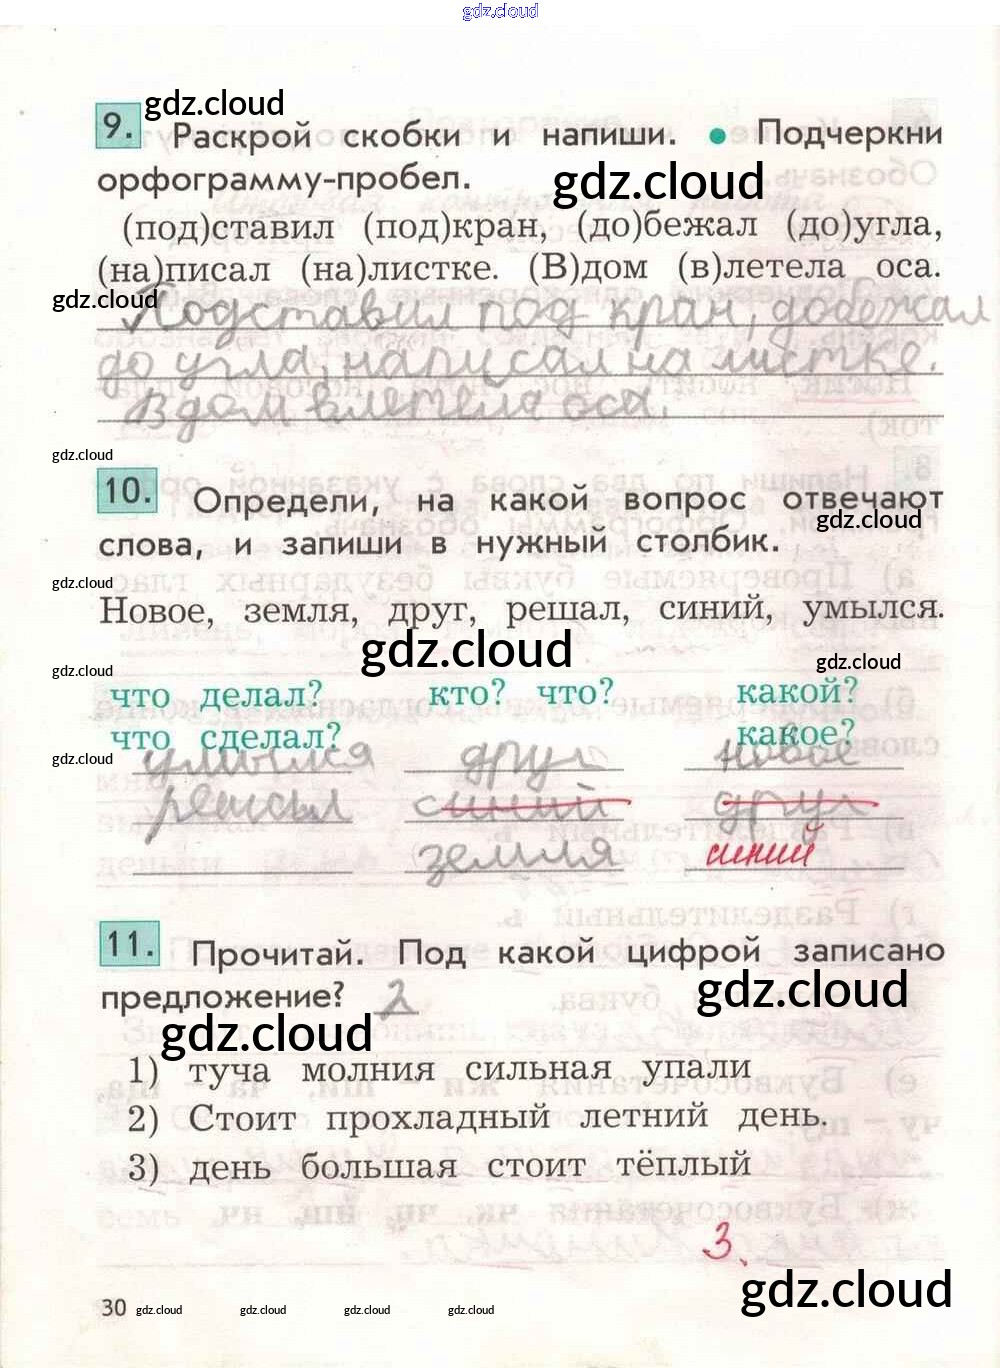 gdz.cloud
gdz.cloud
9. Раскрой скобки и напиши. • Подчеркни
орфограмму-пробел.
gdz.cloud
(под)ставил (под)кран, (до)бежал (до)угла,
(на)писал (на)листке. (В)дом (в)летела оса.
gdz.cloud
Подставил под кран, добежал
до угла, написал на листке.
В дом влетела оса.
gdz.cloud
10. Определи, на какой вопрос отвечают
gdz.cloud
слова, и запиши в нужный столбик.
gdz.cloud
Новое, земля, друг, решал, синий, умылся.
gdz.cloud
gdz.cloud gdz.cloud
что делал? кто? что? какой?
что сделал? какое?
gdz.cloud
умылся друг новое
решал синий друг
земля синий
11. Прочитай. Под какой цифрой записано
предложение? 2
gdz.cloud
gdz.cloud
1) туча молния сильная упали
2) Стоит прохладный летний день.
3) день большая стоит тёплый
3.
gdz.cloud
30 gdz.cloud gdz.cloud gdz.cloud gdz.cloud